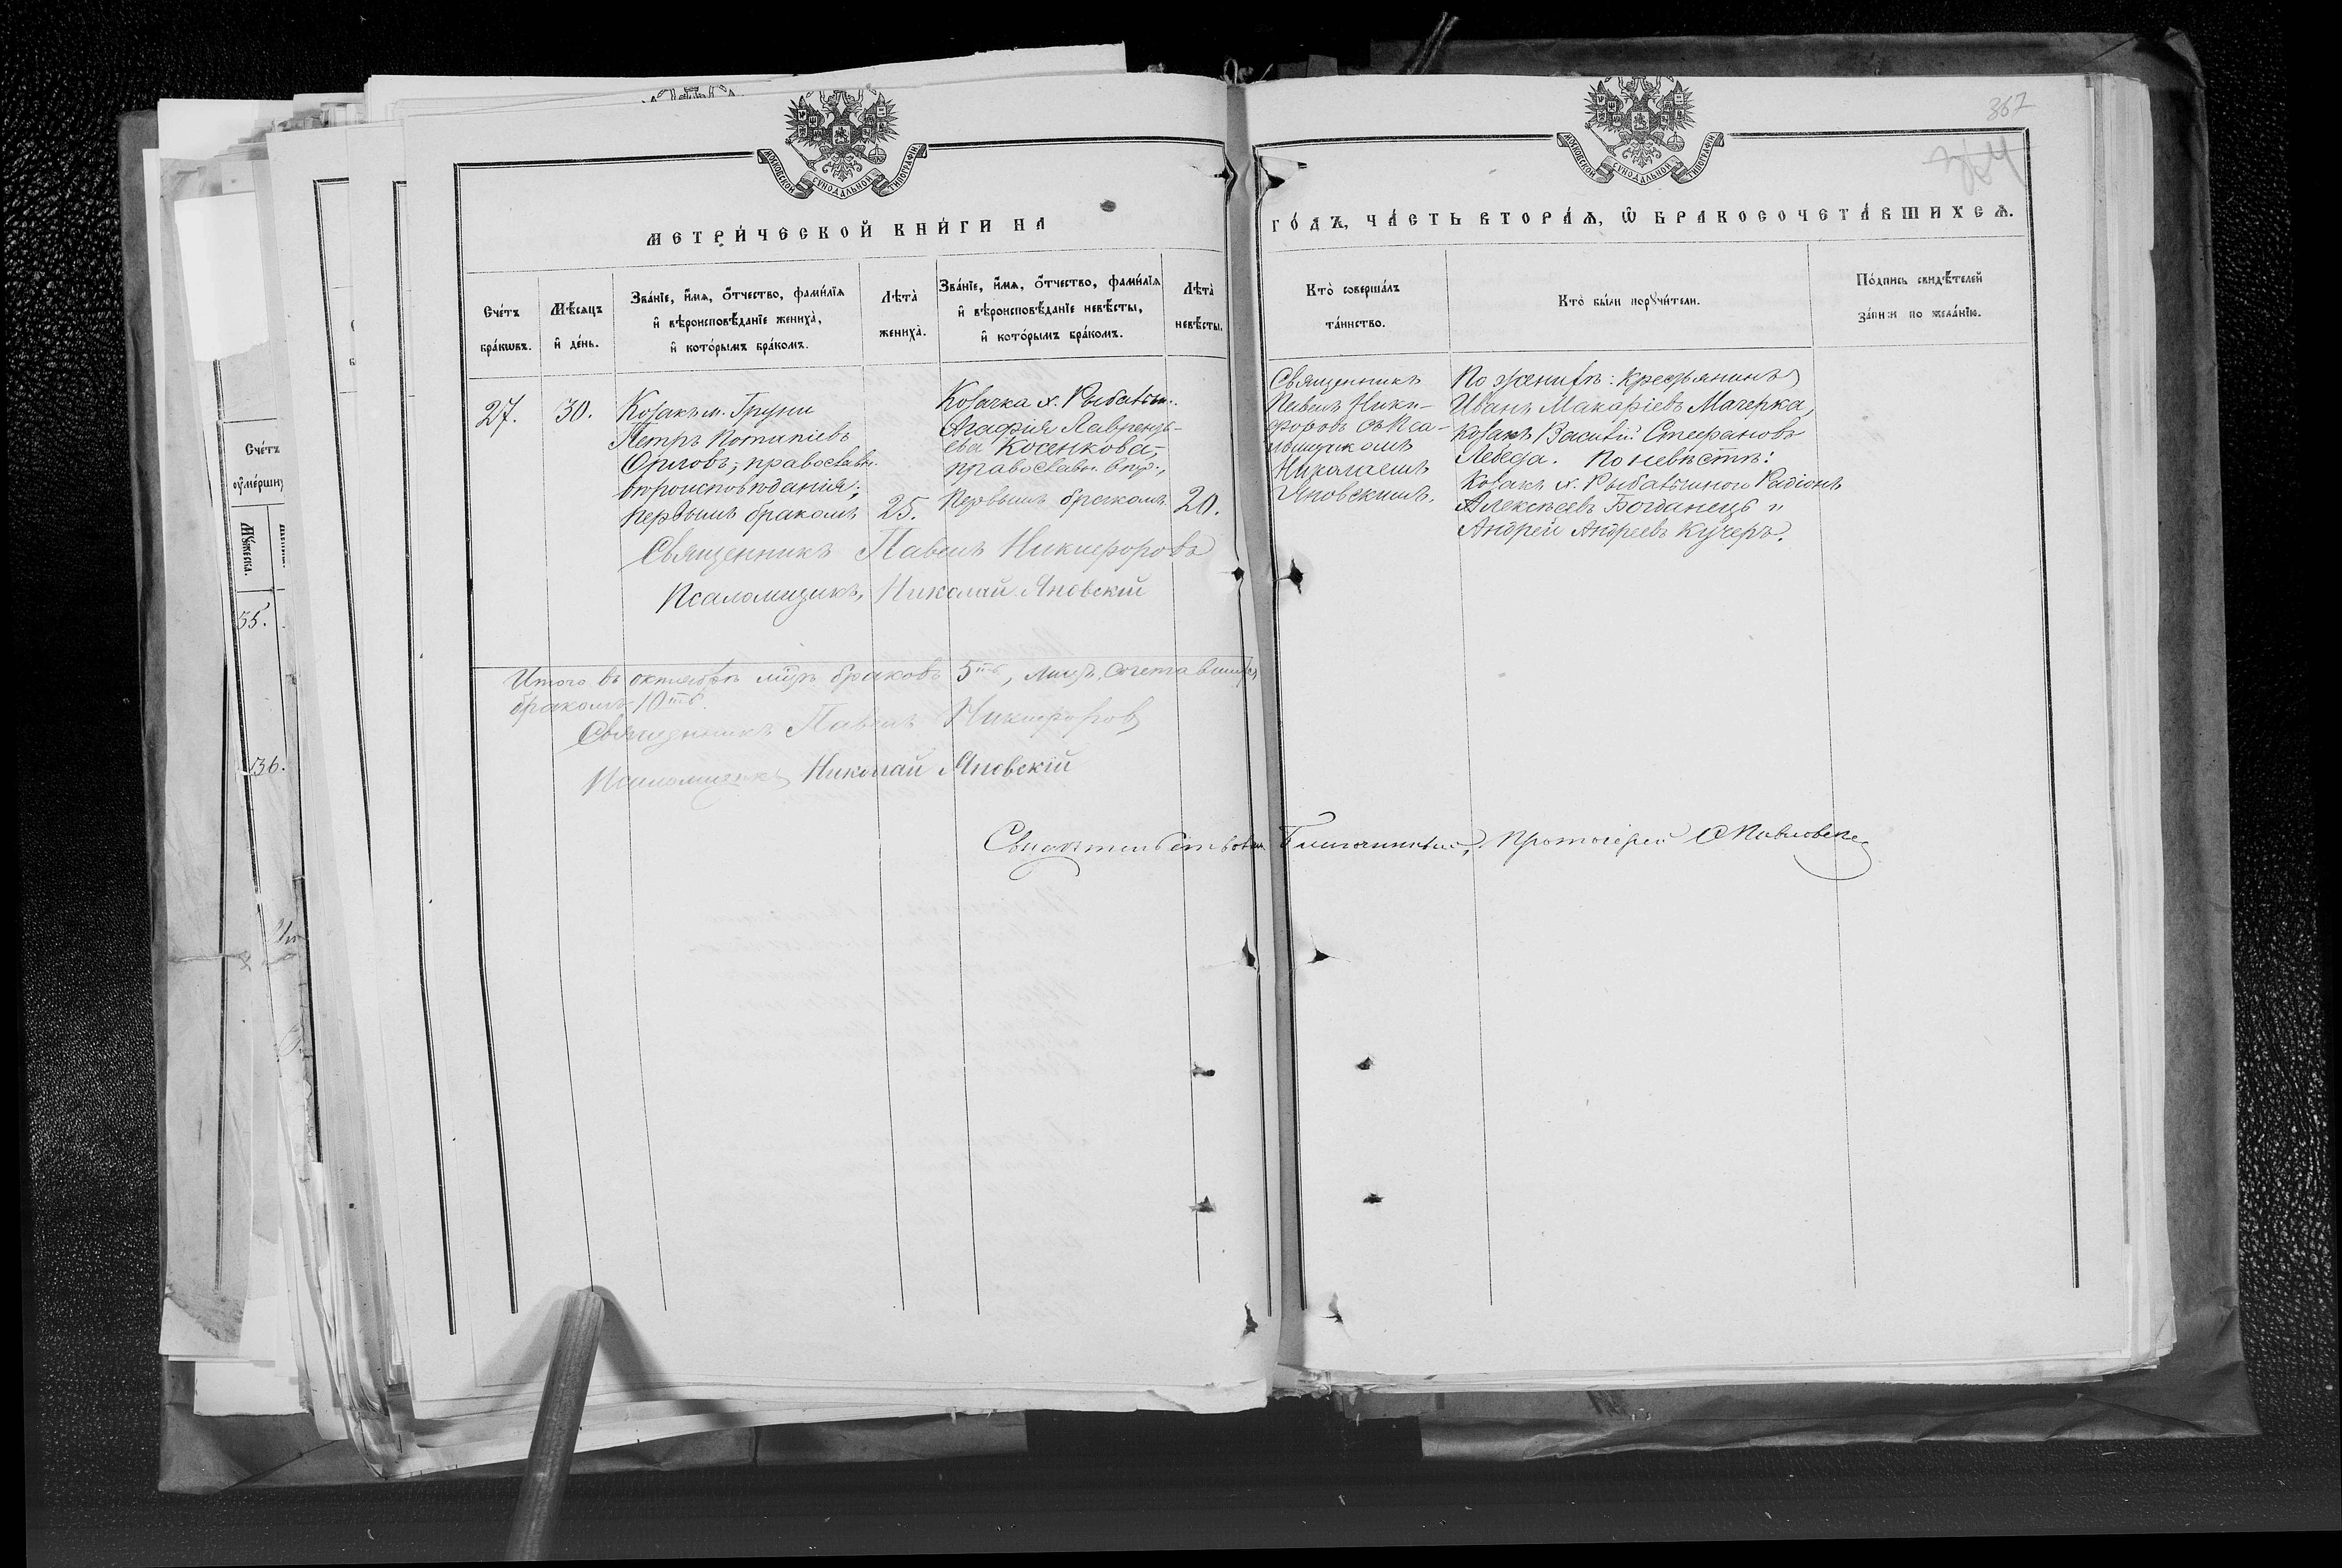 367
364
МОСКОВСКОЙ СУНОДАЛЬНОЙ ТИПОГРАФІИ
МОСКОВСКОЙ СУНОДАЛЬНОЙ ТИПОГРАФІИ
МЕТРИ́ЧЕСКОЙ КНИ́ГИ НА
ГО́ДЪ, ЧА́СТЬ ВТОРА́Ѧ, Ѿ БРАКОСОЧЕТА́ВШИХСѦ.
Сче́тъ
бра́кѡвъ.
Мѣ́сѧцъ
и҆ де́нь.
Зва́нїе, и҆́мѧ, ѻ҆́тчество, фами́лїѧ
и҆ вѣроисповѣ́данїе жениха̀,
и҆ кото́рымъ бра́комъ.
Лѣта̀
жениха̀.
Зва́нїе, и҆́мѧ, ѻ҆́тчество, фами́лїѧ
и҆ вѣроисповѣ́данїе невѣ́сты,
и҆ кото́рымъ бра́комъ.
Лѣта̀
невѣ́сты.
Кто̀ соверша́лъ
та́инство.
Кто̀ бы́ли порꙋчи́тели.
По́дпись свидѣ́телей
за́писи по жела́нїю.
27.
30.
Козакъ м. Груни
Петръ Потапіевъ
Орловъ, православн.
вѣроисповѣданія;
первымъ бракомъ
25.
Козачка х.
Агафія Лаврентьева
Косенкова,
православн. впр.,
Первымъ бракомъ.
20.
Священникъ
Павелъ Ники-
форовъ съ Пса-
ломщикомъ
Николаемъ
Яновскимъ.
По женихѣ: крестьянинъ
Иванъ Макаріевъ Мачерка,
козакъ Василій Стефановъ
Лебеда. По невѣстѣ:
Козакъ х. Родіонъ
Алексѣевъ Богданецъ и
Андрей Андреевъ Кучеръ.
Священникъ Павелъ Никифоровъ
Псаломщикъ, Николай Яновскій
Итого въ октябрѣ м-цѣ браковъ 5ть, лицъ сочетавшихся
бракомъ 10ть.
Священникъ Павелъ Никифоровъ
Псаломщикъ Николай Яновскій
Свидѣтельствовалъ Благочинный, Протоіерей
Сче́тъ
ᲂу҆ме́рших
Мꙋ́жеска.
55.
136.